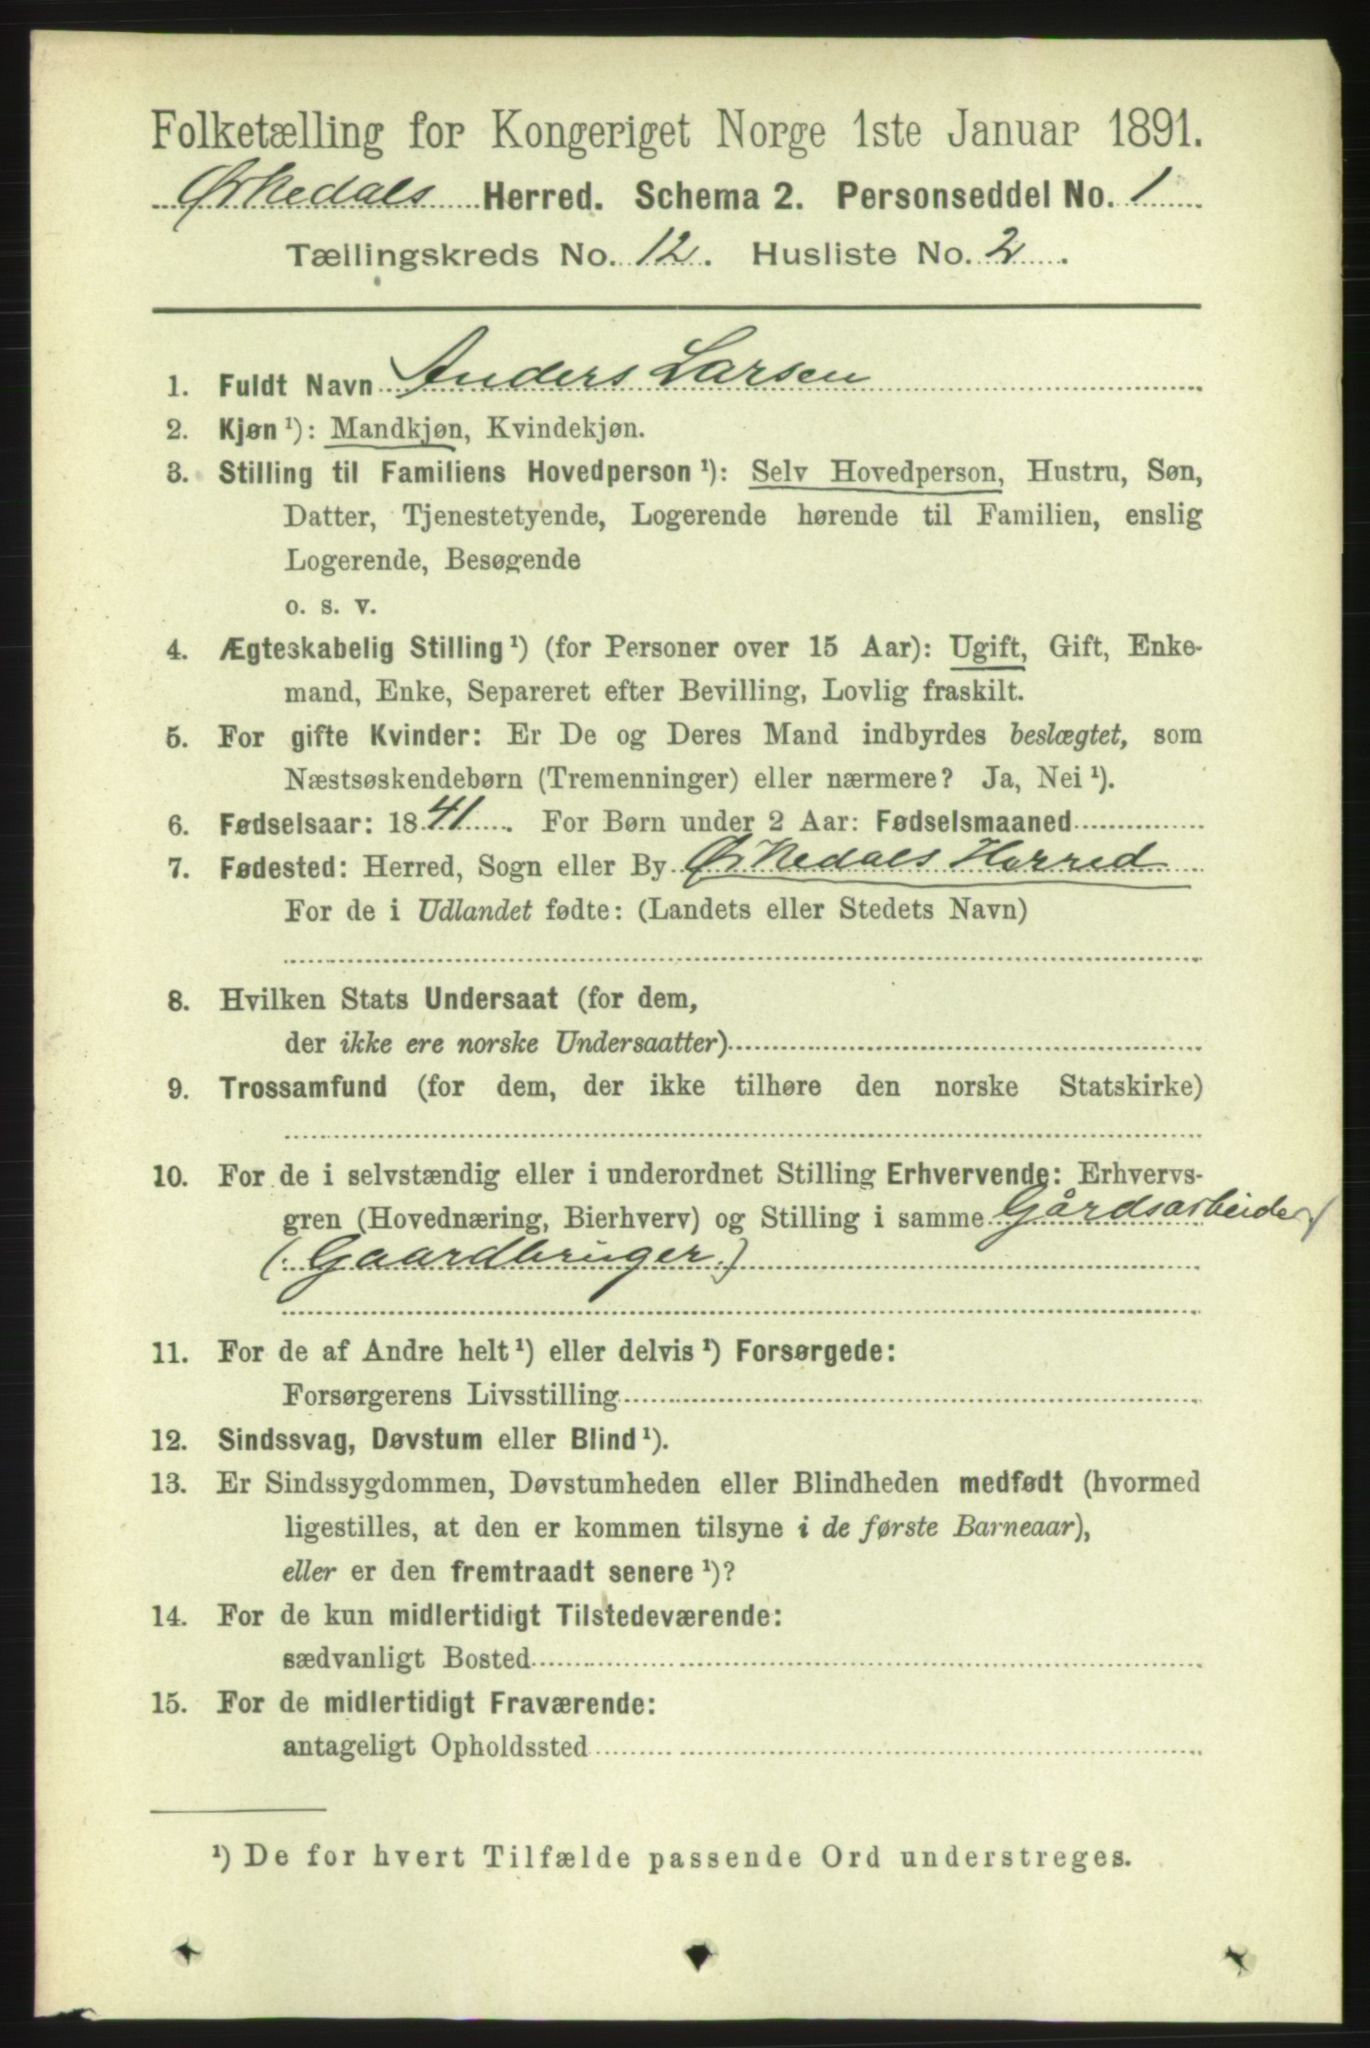 Folketælling for Kongeriget Norge 1ste Januar 1891.
Ørkedals Herred. Schema 2. Personseddel No. 1
Tællingskreds No. 12. Husliste No. 2.
1. Fuldt Navn Anders Larsen
2. Kjøn ¹): Mandkjøn, Kvindekjøn.
3. Stilling til Familiens Hovedperson ¹): Selv Hovedperson, Hustru, Søn,
Datter, Tjenestetyende, Logerende hørende til Familien, enslig
Logerende, Besøgende
o. s. v.
4. Ægteskabelig Stilling ¹) (for Personer over 15 Aar): Ugift, Gift, Enke-
mand, Enke, Separeret efter Bevilling, Lovlig fraskilt.
5. For gifte Kvinder: Er De og Deres Mand indbyrdes beslægtet, som
Næstsøskendebørn (Tremenninger) eller nærmere? Ja, Nei ¹).
6. Fødselsaar: 1841. For Børn under 2 Aar: Fødselsmaaned
7. Fødested: Herred, Sogn eller By Ørkedals Herred
For de i Udlandet fødte: (Landets eller Stedets Navn)
8. Hvilken Stats Undersaat (for dem,
der ikke ere norske Undersaatter)
9. Trossamfund (for dem, der ikke tilhøre den norske Statskirke)
10. For de i selvstændig eller i underordnet Stilling Erhvervende: Erhvervs-
gren (Hovednæring, Bierhverv) og Stilling i samme Gårdsarbeider
(: Gaardbruger :)
11. For de af Andre helt ¹) eller delvis ¹) Forsørgede:
Forsørgerens Livsstilling
12. Sindssvag, Døvstum eller Blind ¹).
13. Er Sindssygdommen, Døvstumheden eller Blindheden medfødt (hvormed
ligestilles, at den er kommen tilsyne i de første Barneaar),
eller er den fremtraadt senere ¹)?
14. For de kun midlertidigt Tilstedeværende:
sædvanligt Bosted
15. For de midlertidigt Fraværende:
antageligt Opholdssted
¹) De for hvert Tilfælde passende Ord understreges.